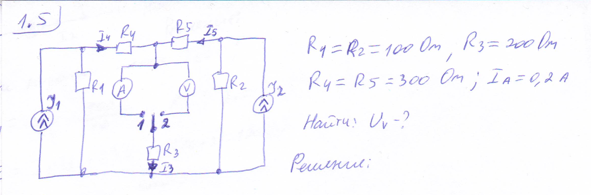 1.5
I4 R4 R5 I5
R1 A V R2
J1 J2
1 2
R3
I3
R1 = R2 = 100 Ом, R3 = 200 Ом
R4 = R5 = 300 Ом ; IA = 0,2 А
Найти: Uv - ?
Решение: